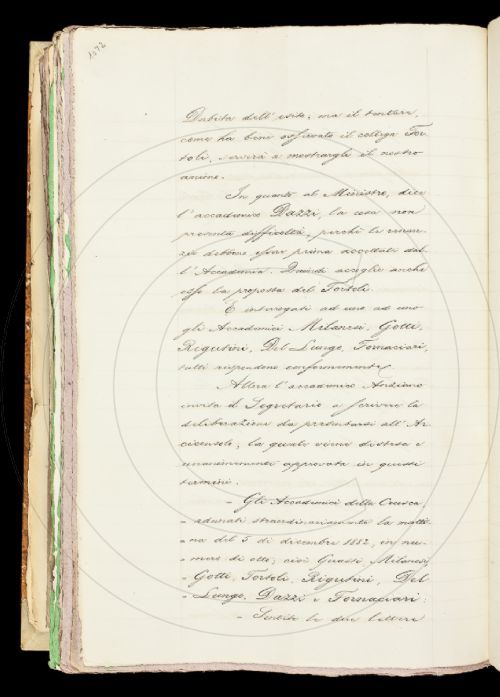 1072
Dubita dell'esito, ma il tentare,
come ha bene osservato il collega Tor-
toli, servirà a mostrargli il nostro
animo.
In quanto al Ministro, dice
l'accademico Dazzi, la cosa non
presenta difficoltà, perchè le rinun-
zie debbono esser prima accettate dal-
l'Accademia. Quindi accoglie anche
esso la proposta del Tortoli.
E interrogati ad uno ad uno
gli Accademici Milanesi, Gotti,
Rigutini, Del Lungo, Fornaciari,
tutti rispondono conformemente.
Allora l'accademico Anziano
invita il Segretario a scrivere la
deliberazione da presentarsi all'Ar-
ciconsolo; la quale viene distesa e
unanimemente approvata in questi
termini.
- Gli Accademici della Crusca,
" adunati straordinariamente la matti-
" na del 5 di dicembre 1882, in nu-
" mero di otto, cioè Guasti, Milanesi,
" Gotti, Tortoli, Rigutini, Del
" Lungo, Dazzi e Fornaciari:
- Sentite le due lettere